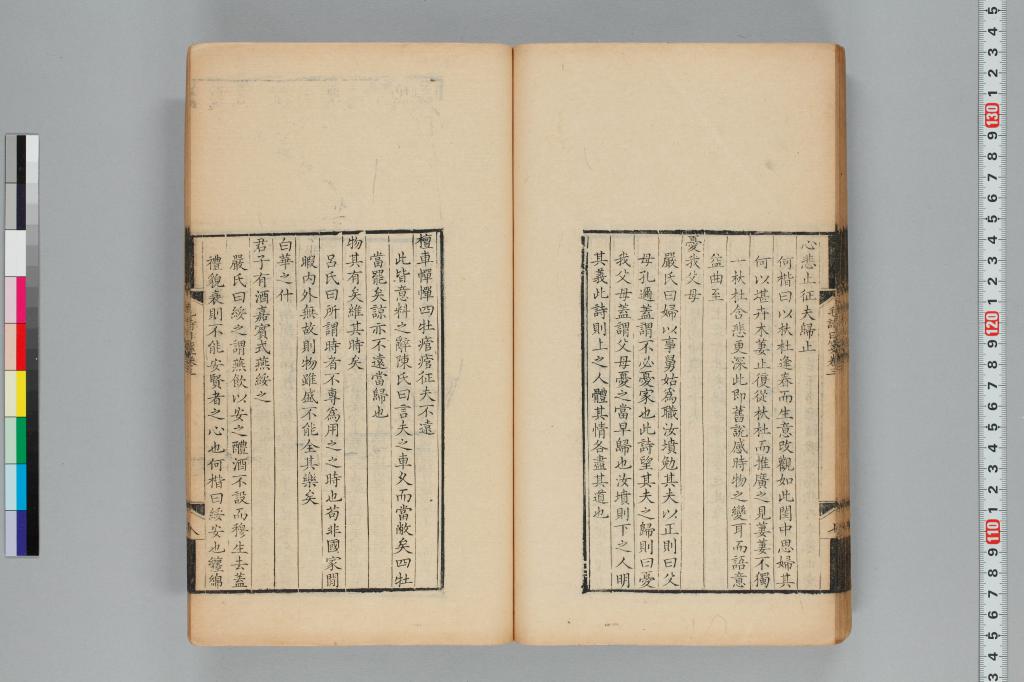 心悲止征夫歸止
何楷曰以杕杜逢春而生意改觀如此閨中思婦其
何以堪卉木萋止復從杕杜而推廣之見萋萋不獨
一杕杜含悲更深此即舊說感時物之變耳而語意
益曲至
憂我父母
嚴氏曰婦以事舅姑為職汝墳勉其夫以正則曰父
母孔邇蓋謂不必憂家也此詩望其夫之歸則曰憂
我父母蓋謂父母憂之當早歸也汝墳則下之人明
其義此詩則上之人體其情各盡其道也
七
檀車幝幝四牡痯痯征夫不遠
此皆意料之辭陳氏曰言夫之車久而當敝矣四牡
當罷矣諒亦不遠當歸也
物其有矣維其時矣
呂氏曰所謂時者不專為用之之時也茍非國家閒
暇內外無故則物雖盛不能全其樂矣
白華之什
君子有酒嘉賓式燕綏之
嚴氏曰綏之謂燕飲以安之醴酒不設而穆生去蓋
禮貌衰則不能安賢者之心也何楷曰綏安也纏綿
八